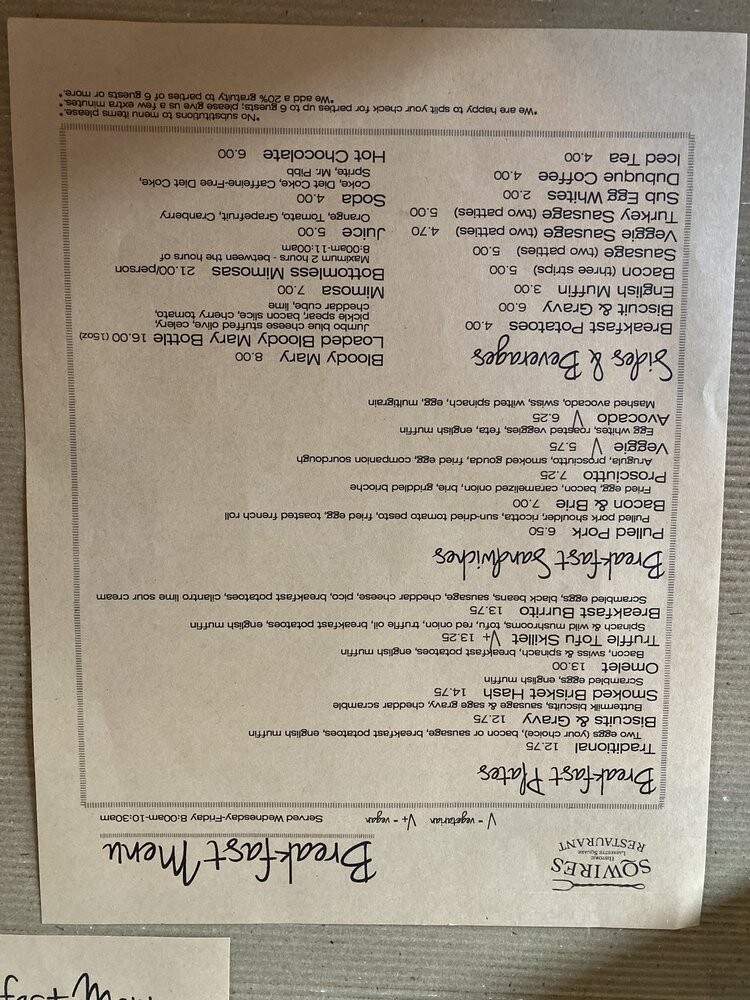 SQWIRES
HISTORIC
LAFAYETTE SQUARE
RESTAURANT
Breakfast Menu
V = vegetarian V+ = vegan Served Wednesday-Friday 8:00am-10:30am
Breakfast Plates
Traditional 12.75
Two eggs (your choice), bacon or sausage, breakfast potatoes, english muffin
Biscuits & Gravy 12.75
Buttermilk biscuits, sausage & sage gravy, cheddar scramble
Smoked Brisket Hash 14.75
Scrambled eggs, english muffin
Omelet 13.00
Bacon, swiss & spinach, breakfast potatoes, english muffin
Truffle Tofu Skillet V+ 13.25
Spinach & wild mushrooms, tofu, red onion, truffle oil, breakfast potatoes, english muffin
Breakfast Burrito 13.75
Scrambled eggs, black beans, sausage, cheddar cheese, pico, breakfast potatoes, cilantro lime sour cream
Breakfast Sandwiches
Pulled Pork 6.50
Pulled pork shoulder, ricotta, sun-dried tomato pesto, fried egg, toasted french roll
Bacon & Brie 7.00
Fried egg, bacon, caramelized onion, brie, griddled brioche
Prosciutto 7.25
Arugula, prosciutto, smoked gouda, fried egg, companion sourdough
Veggie V 5.75
Egg whites, roasted veggies, feta, english muffin
Avocado V 6.25
Mashed avocado, swiss, wilted spinach, egg, multigrain
Sides & Beverages
Breakfast Potatoes 4.00
Biscuit & Gravy 6.00
English Muffin 3.00
Bacon (three strips) 5.00
Sausage (two patties) 5.00
Veggie Sausage (two patties) 4.70
Turkey Sausage (two patties) 5.00
Sub Egg Whites 2.00
Dubuque Coffee 4.00
Iced Tea 4.00
Bloody Mary 8.00
Loaded Bloody Mary Bottle 16.00 (15oz)
Jumbo blue cheese stuffed olive, celery,
pickle spear, bacon slice, cherry tomato,
cheddar cube, lime
Mimosa 7.00
Bottomless Mimosas 21.00/person
Maximum 2 hours - between the hours of
8:00am-11:00am
Juice 5.00
Orange, Tomato, Grapefruit, Cranberry
Soda 4.00
Coke, Diet Coke, Caffeine-Free Diet Coke,
Sprite, Mr. Pibb
Hot Chocolate 6.00
*No substitutions to menu items please.*
*We are happy to split your check for parties up to 6 guests; please give us a few extra minutes.*
*We add a 20% gratuity to parties of 6 guests or more.*